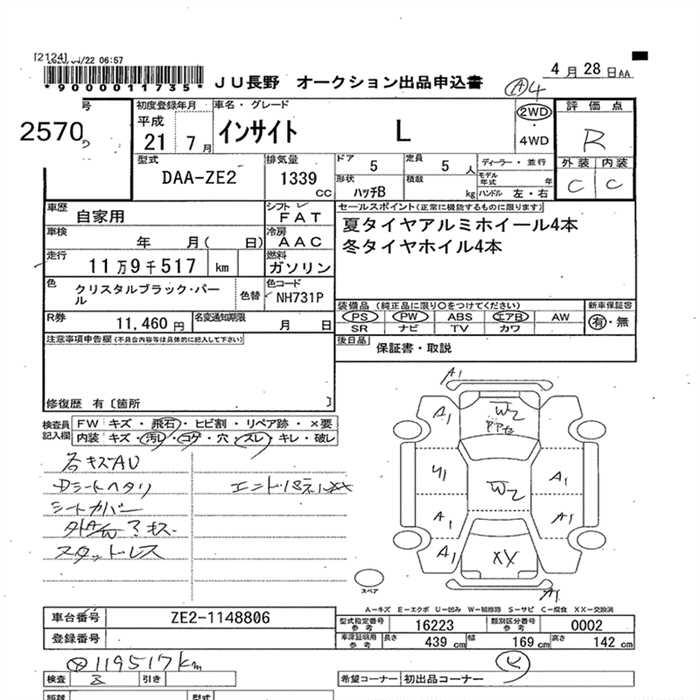 [2124]
/22 06:57
*9000011735*
JU長野 オークション出品申込書
4月28日AA
A4
号
2570
初度登録年月
平成
21 7月
車名・グレード
インサイト L
2WD
・
4WD
評価点
R
外装 内装
C C
型式
DAA-ZE2
排気量
1339 CC
ドア 5
定員 5人
ディーラー・並行
形状 ハッチB
積載 kg
モデル年式 年
ハンドル 左・右
車歴
自家用
シフト
FAT
セールスポイント(正常に機能するものに限ります)
夏タイヤアルミホイール4本
冬タイヤホイル4本
車検
年 月( 日)
冷房
AAC
走行
11万9千517 km
燃料
ガソリン
色
クリスタルブラック・パール
色替
色コード
NH731P
R券
11,460円
名変通知期限
月 日
装備品 (純正品に限り○をつけてください)
PS PW ABS エアB AW
SR ナビ TV カワ
新車保証書
有・無
後日品
保証書・取説
注意事項申告欄(不具合内容等は具体的に記入して下さい)
修復歴 有〔箇所 〕
検査員
記入欄
FW キズ・飛石・ヒビ割・リペア跡・×要
内装 キズ・汚れ・コゲ・穴・スレ・キレ・破レ
各キズAU
Dシートヘタリ
シートカバー
スタッドレス
A1
A1
W2
A1
U1
W2
A1
A1
A1
A1
XX
A1
スペア
A-キズ E-エクボ U-凹み W-補修跡 S-サビ C-腐食 XX-交換済
車台番号
ZE2-1148806
登録番号
型式指定番号
参考
16223
類別区分番号
参考
0002
車庫証明用
参考
長さ 439 cm
幅 169 cm
高さ 142 cm
119517km
検査
引き
希望コーナー
初出品コーナー
型式